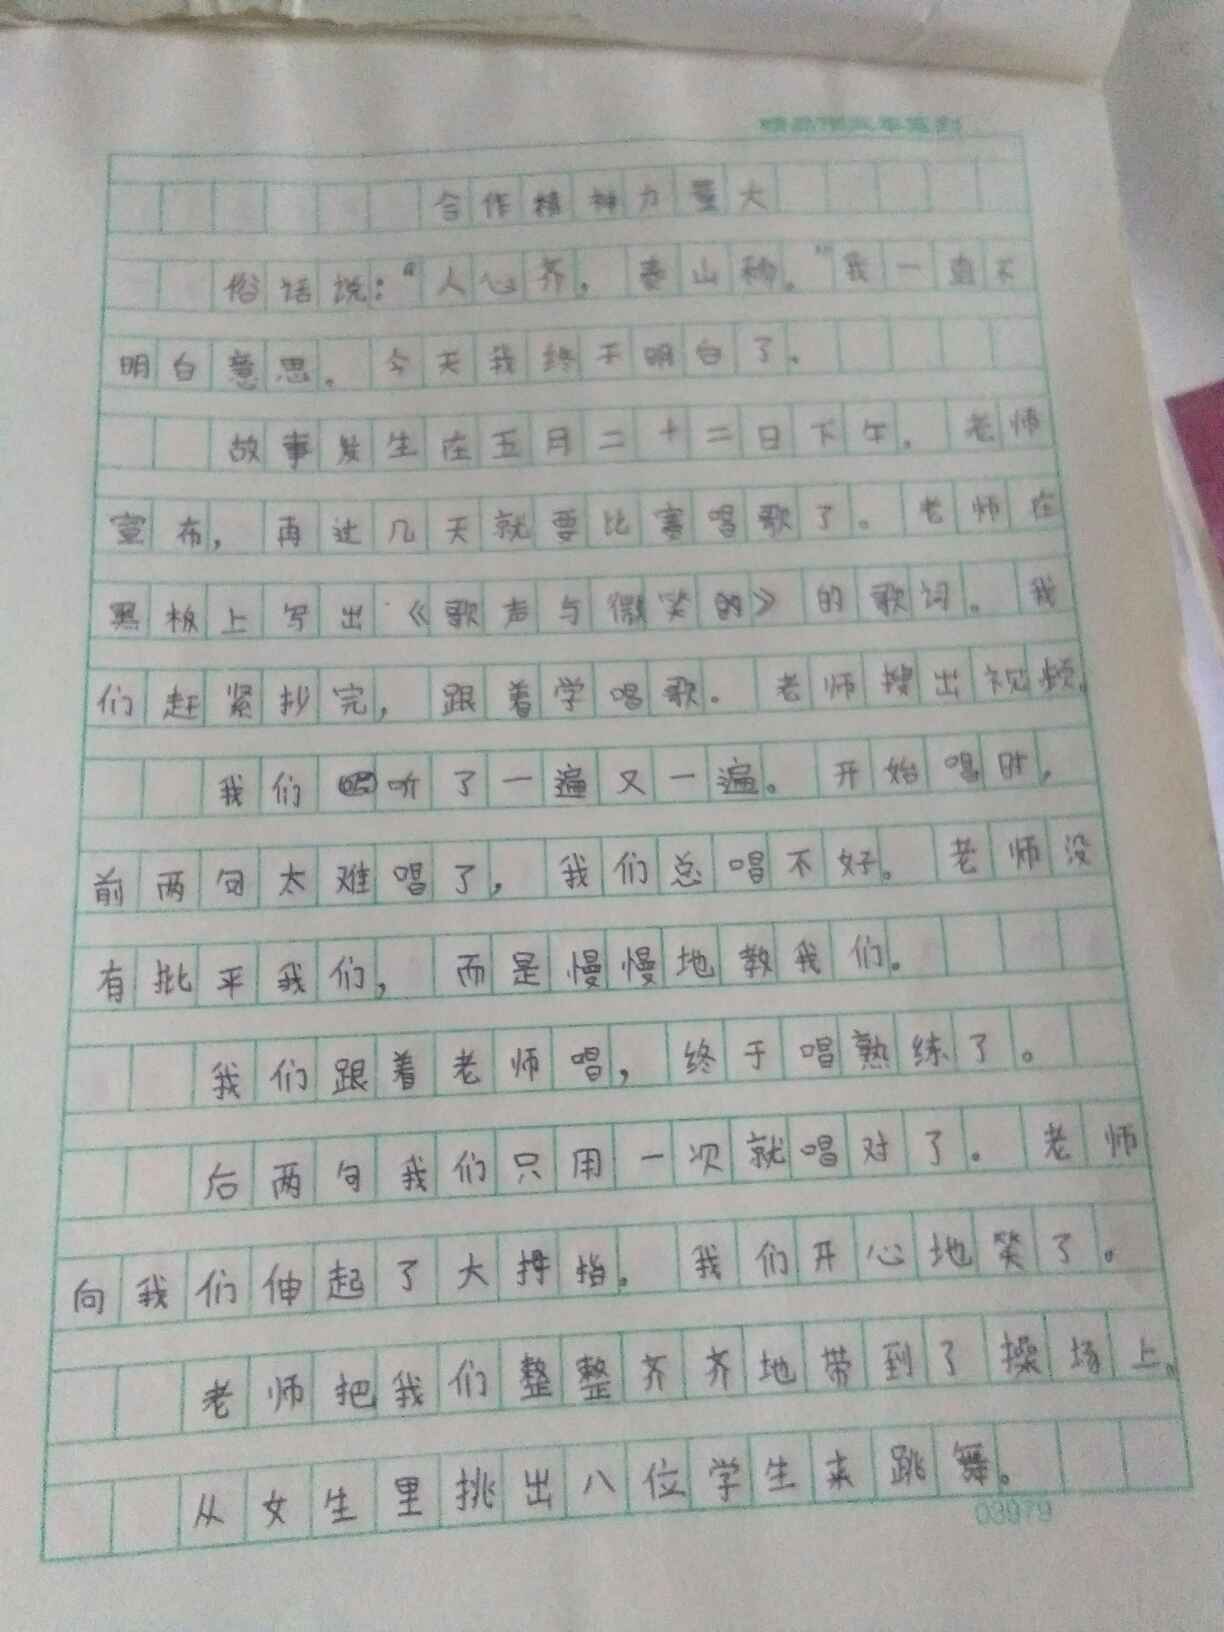 合作精神力量大
俗话说:“人心齐,泰山移。”我一直不
明白意思。今天我终于明白了。
故事发生在五月二十二日下午。老师
宣布,再过几天就要比赛唱歌了。老师在
黑板上写出《歌声与微笑》的歌词。我
们赶紧抄完,跟着学唱歌。老师搜出视频。
我们听了一遍又一遍。开始唱时,
前两句太难唱了,我们总唱不好。老师没
有批平我们,而是慢慢地教我们。
我们跟着老师唱,终于唱熟练了。
后两句我们只用一次就唱对了。老师
向我们伸起了大拇指。我们开心地笑了。
老师把我们整整齐齐地带到了操场上。
从女生里挑出八位学生来跳舞。
03979